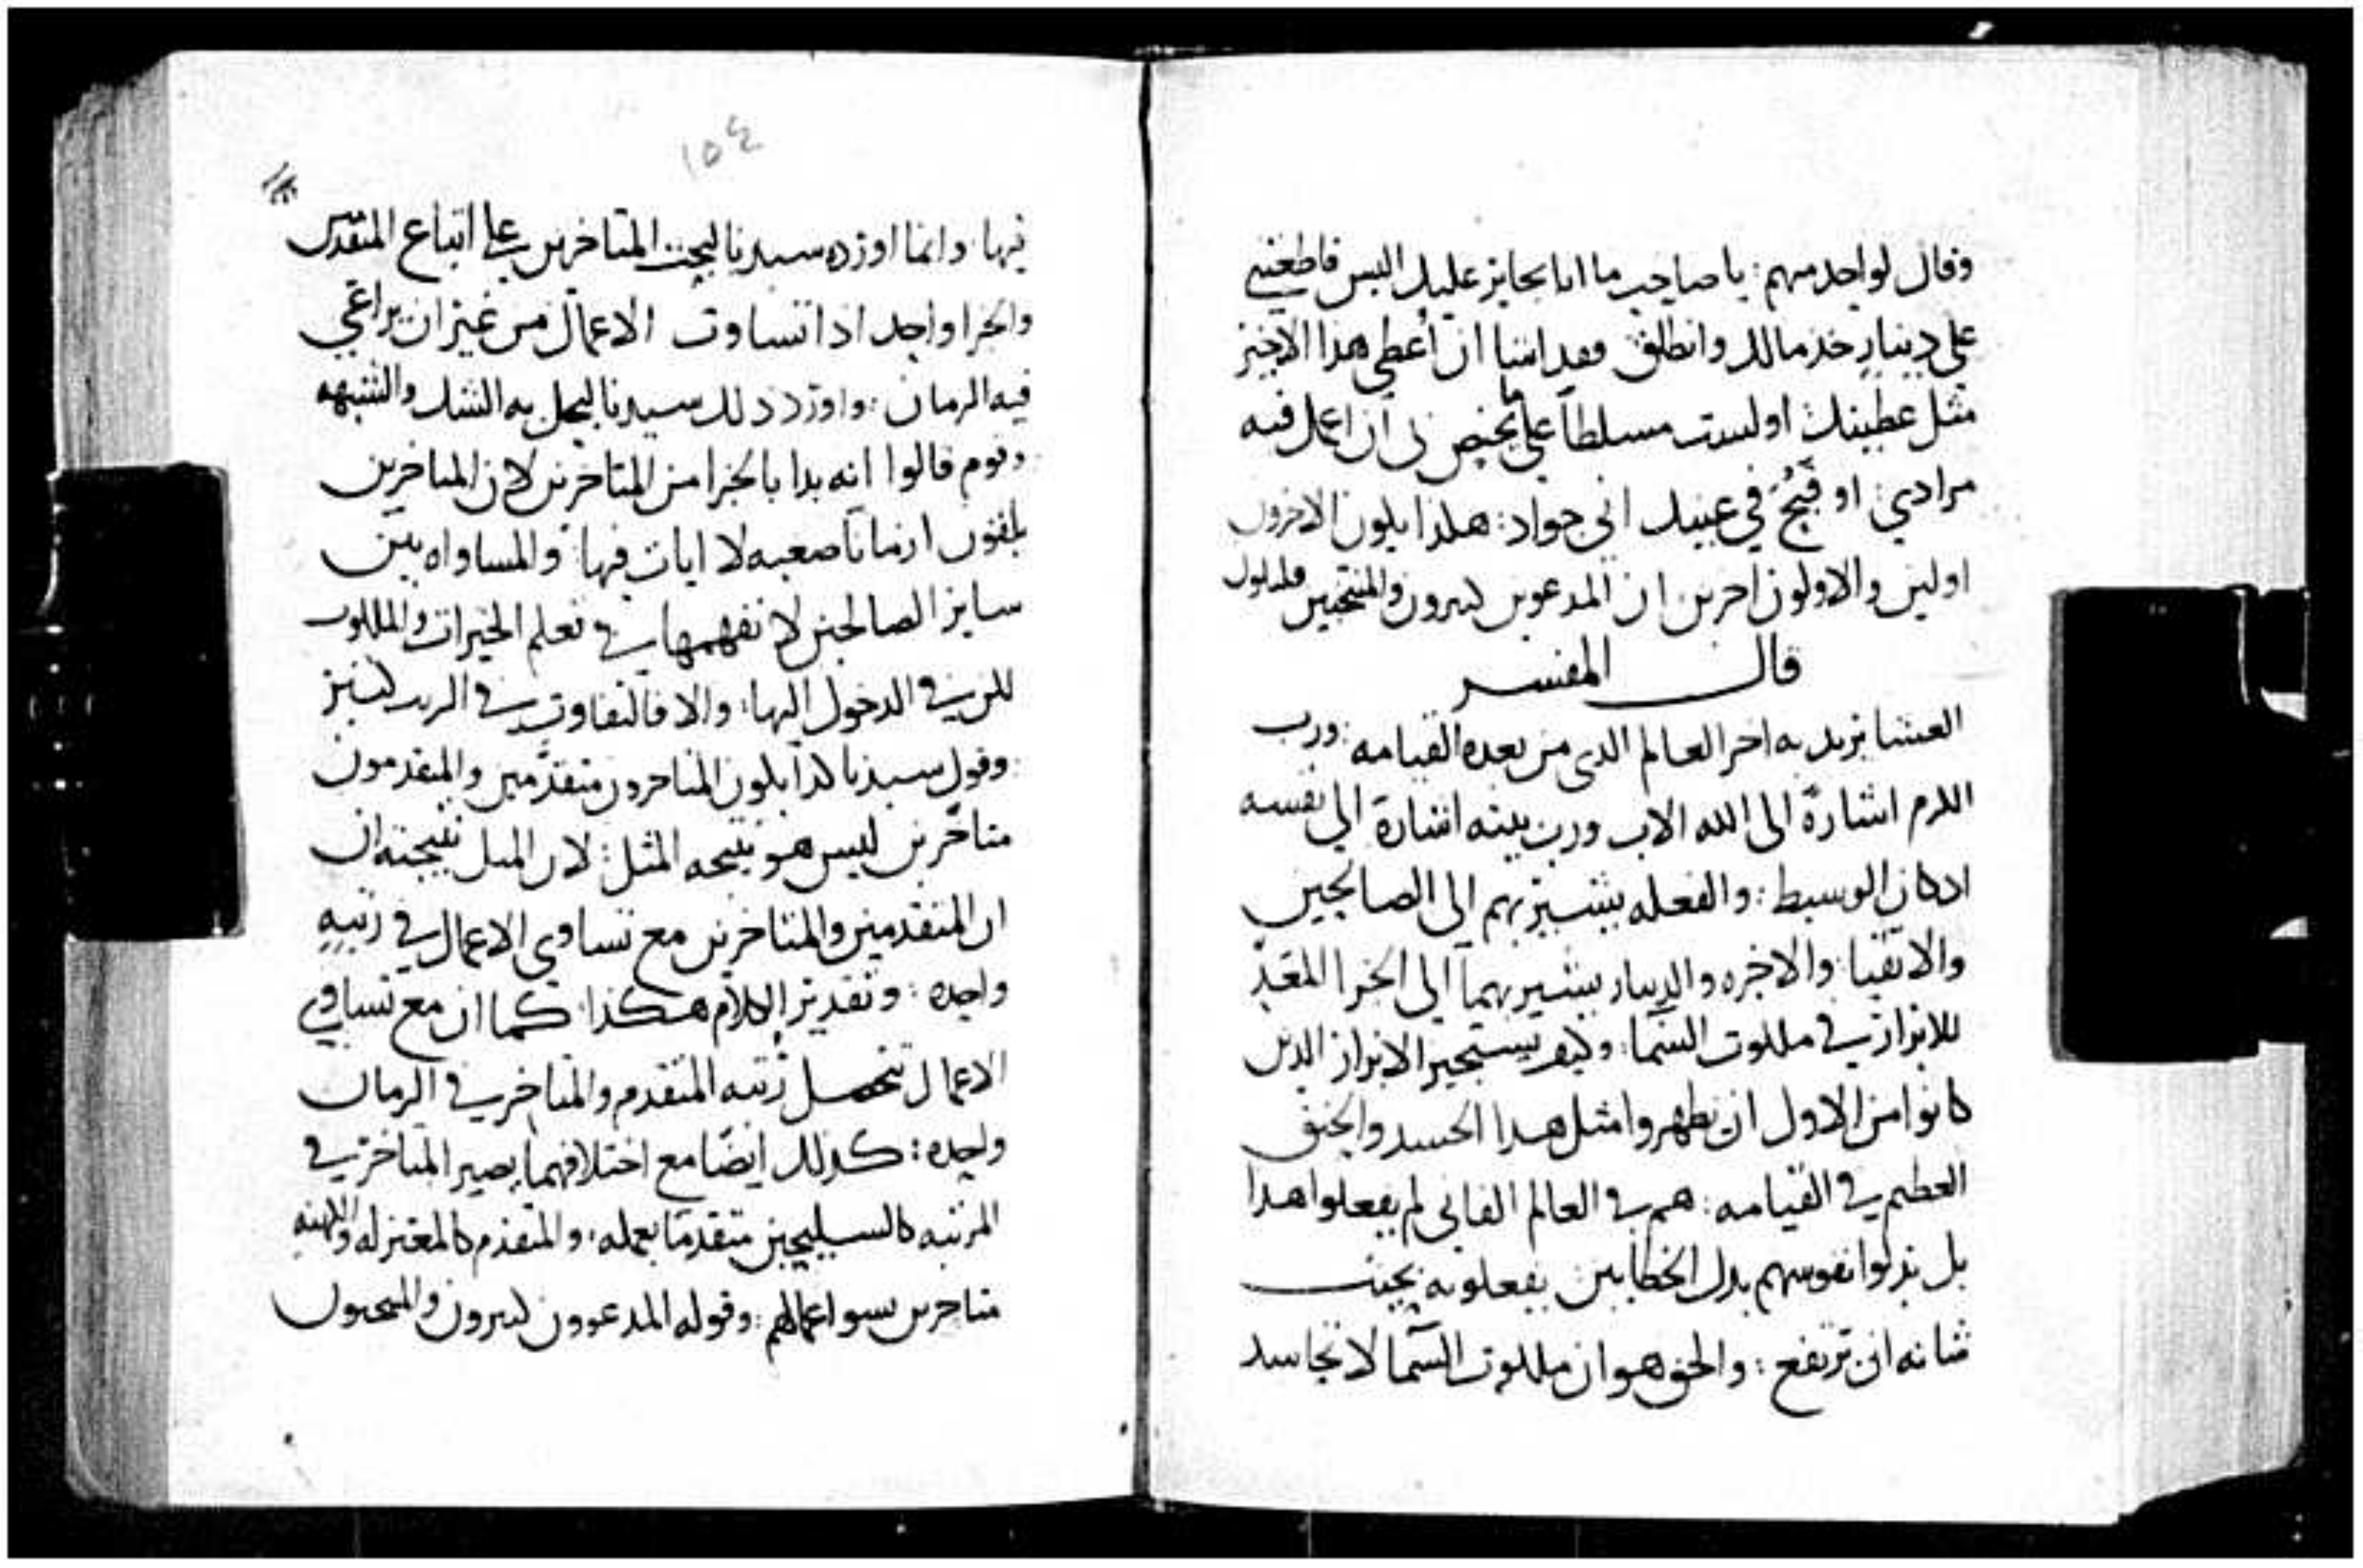 وقال لواحد منهم: يا صاحب ما انا بحايز عليك اليس قاطعتني
على دينار خذ مالك وانطلق فقد اشا ان أعطي هذا الاخير
مثل عطيتك اولست مسلطاً على ما يختص لى ان اعمل فيه
مرادي: او قبُحَ في عينيك انى جواد: هكذا يكون الاخرون
اولين والاولون اخرين ان المدعوين كثيرون والمنتجبين قليلون
قال المفسر
العشا يريد به اخر العالم الدى من بعده القيامه: ورب
الكرم اشارة الى الله الاب ورب بيته اشارة الى نفسه
اد كان الوسيط: والفعله يشير بهم الى الصالحين
والاتقيا: والاجره والدينار يشير بهما الى الجزا المعَدّ
للابرار في ملكوت السما: وكيف يستجيز الابرار الدين
كانوا من الاول ان يظهروا مثل هدا الحسد والحنق
العطيم في القيامه: هم في العالم الفانى لم يفعلوا هدا
بل بدلوا نفوسهم بدل الخطايين يفعلونه بحيث
شانه ان ترتفع: والحق هو ان ملكوت السما لا تحاسد
١٥٤
فيها: وانما اورده سيدنا ليحث المتاخرين على اتباع
والجزا واحد ادا تساوت الاعمال من غير ان يراعى
فيه الزمان: واورد دلك سيدنا ليحل به الشك والشبهه
وقوم قالوا انه بدا بالجزا من المتاخرين لان المتاخرين
يلقون ازمانا صعبه لا ايات فيها: والمساواه بين
ساير الصالحين لا تفهمها في نعلم الخيرات والملكوت
لكن في الدخول اليها: والا فالتفاوت في الرتب كثير
وقول سيدنا كدا يكون المتاخرون متقدّمين والمتقدمون
متاخّرين ليس هو نتيجه المثل: لان المثل نتيجته ان
ان المتقدمين والمتاخرين مع تساوي الاعمال في رتبهٍ
واحده: وتقدير الكلام هكذا: كما ان مع تساوي
الاعمال تحصل رُتبه المتقدم والمتاخر في الزمان
واحده: كدلك ايضًا مع اختلافهما يصير المتاخر في
المرتبه كالسليحين متقدمًا بعمله: والمتقدم كالمعتزله والكهنه
متاخرين بسو اعمالهم: وقوله المدعوون كثيرون والمنتجبون